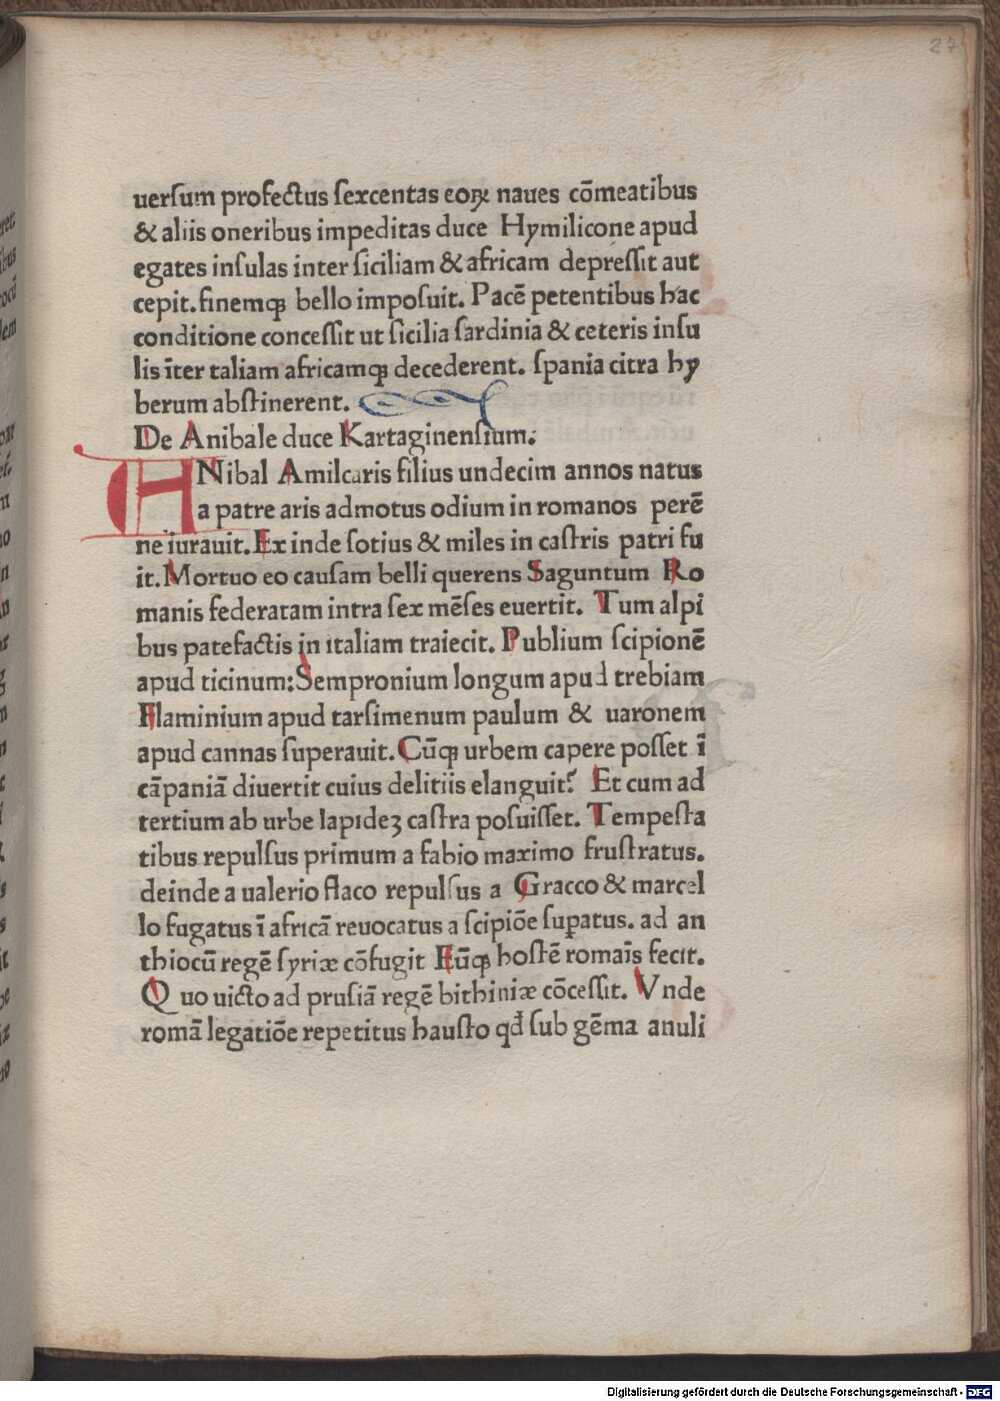 27
uerſum profectus ſexcentas eoꝝ naues cōmeatibus
& aliis oneribus impeditas duce Hymilicone apud
egates inſulas inter ſiciliam & africam depreſſit aut
cepit. finemqꝫ bello impoſuit. Pacē petentibus hac
conditione conceſſit ut ſicilia ſardinia & ceteris inſu
lis īter taliam africamqꝫ decederent. ſpania citra hy
berum abſtinerent.
De Anibale duce Kartaginenſium:
HNibal Amilcaris filius undecim annos natus
a patre aris admotus odium in romanos perē
ne iurauit. Ex inde ſotius & miles in caſtris patri fu
it. Mortuo eo cauſam belli querens Saguntum Ro
manis federatam intra ſex mēſes euertit. Tum alpi
bus patefactis in italiam traiecit. Publium ſcipionē
apud ticinum: Sempronium longum apud trebiam
Flaminium apud tarſimenum paulum & uaronem
apud cannas ſuperauit. Cūqꝫ urbem capere poſſet ī
cāpaniā diuertit cuius delitiis elanguit? Et cum ad
tertium ab urbe lapideꝫ caſtra poſuiſſet. Tempeſta
tibus repulſus primum a fabio maximo fruſtratus.
deinde a ualerio flaco repulſus a Gracco & marcel
lo fugatus ī africā reuocatus a ſcipiōe ſuꝑatus. ad an
thiocū regē ſyriæ cōfugit Eūqꝫ hoſtē romaīs fecit.
Quo uicto ad pruſiā regē bithiniæ cōceſſit. Vnde
romā legatiōe repetitus hauſto qđ ſub gēma anuli
Digitalisierung gefördert durch die Deutsche Forschungsgemeinschaft - DFG